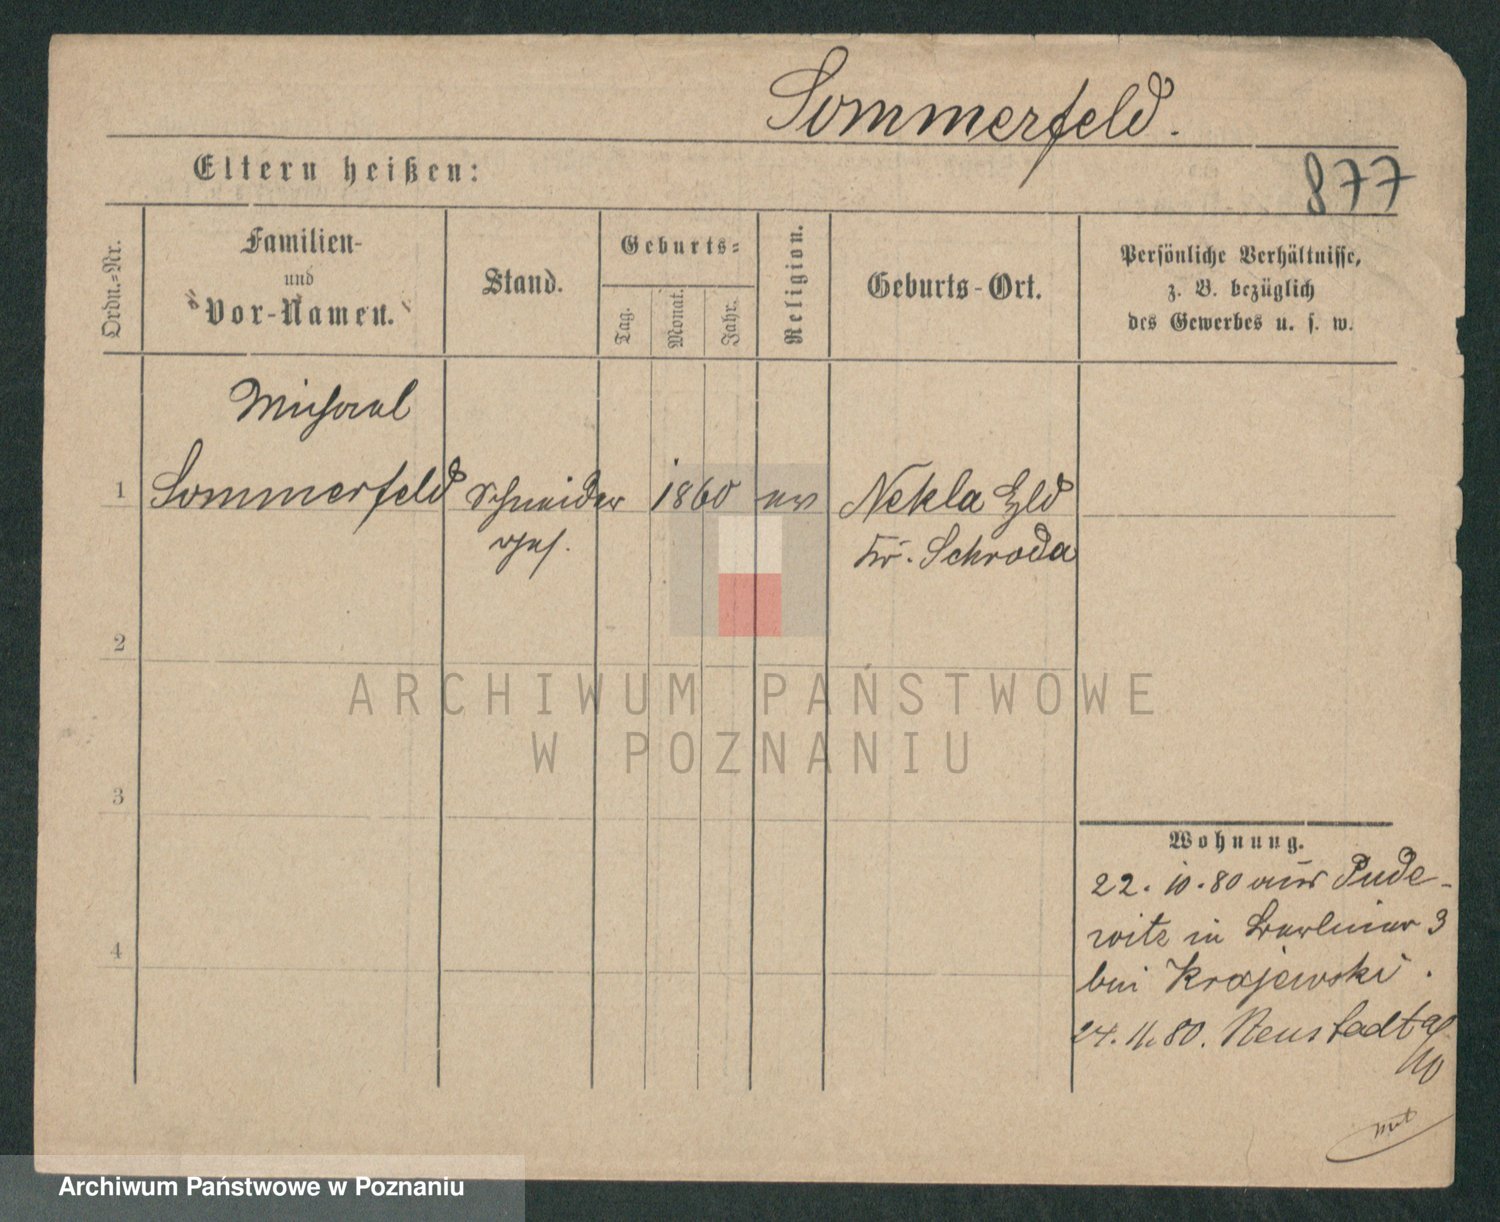 Sommerfeld.
Eltern heißen:
877
Ordn.=Nr.
Familien-
und
Vor-Namen.
Stand.
Geburts=
Tag.
Monat.
Jahr.
Religion.
Geburts-Ort.
Persönliche Verhältnisse,
z. B. bezüglich
des Gewerbes u. s. w.
Michael
1 Sommerfeld Schneider 1860 ev Nekla Hld
ges. Kr. Schroda
2
3
4
ARCHIWUM PAŃSTWOWE
W POZNANIU
Wohnung.
22. 10. 80 aus Pude-
witz in Berliner 3
bei Krajewski.
24. 11. 80. Neustadt a/
Archiwum Państwowe w Poznaniu